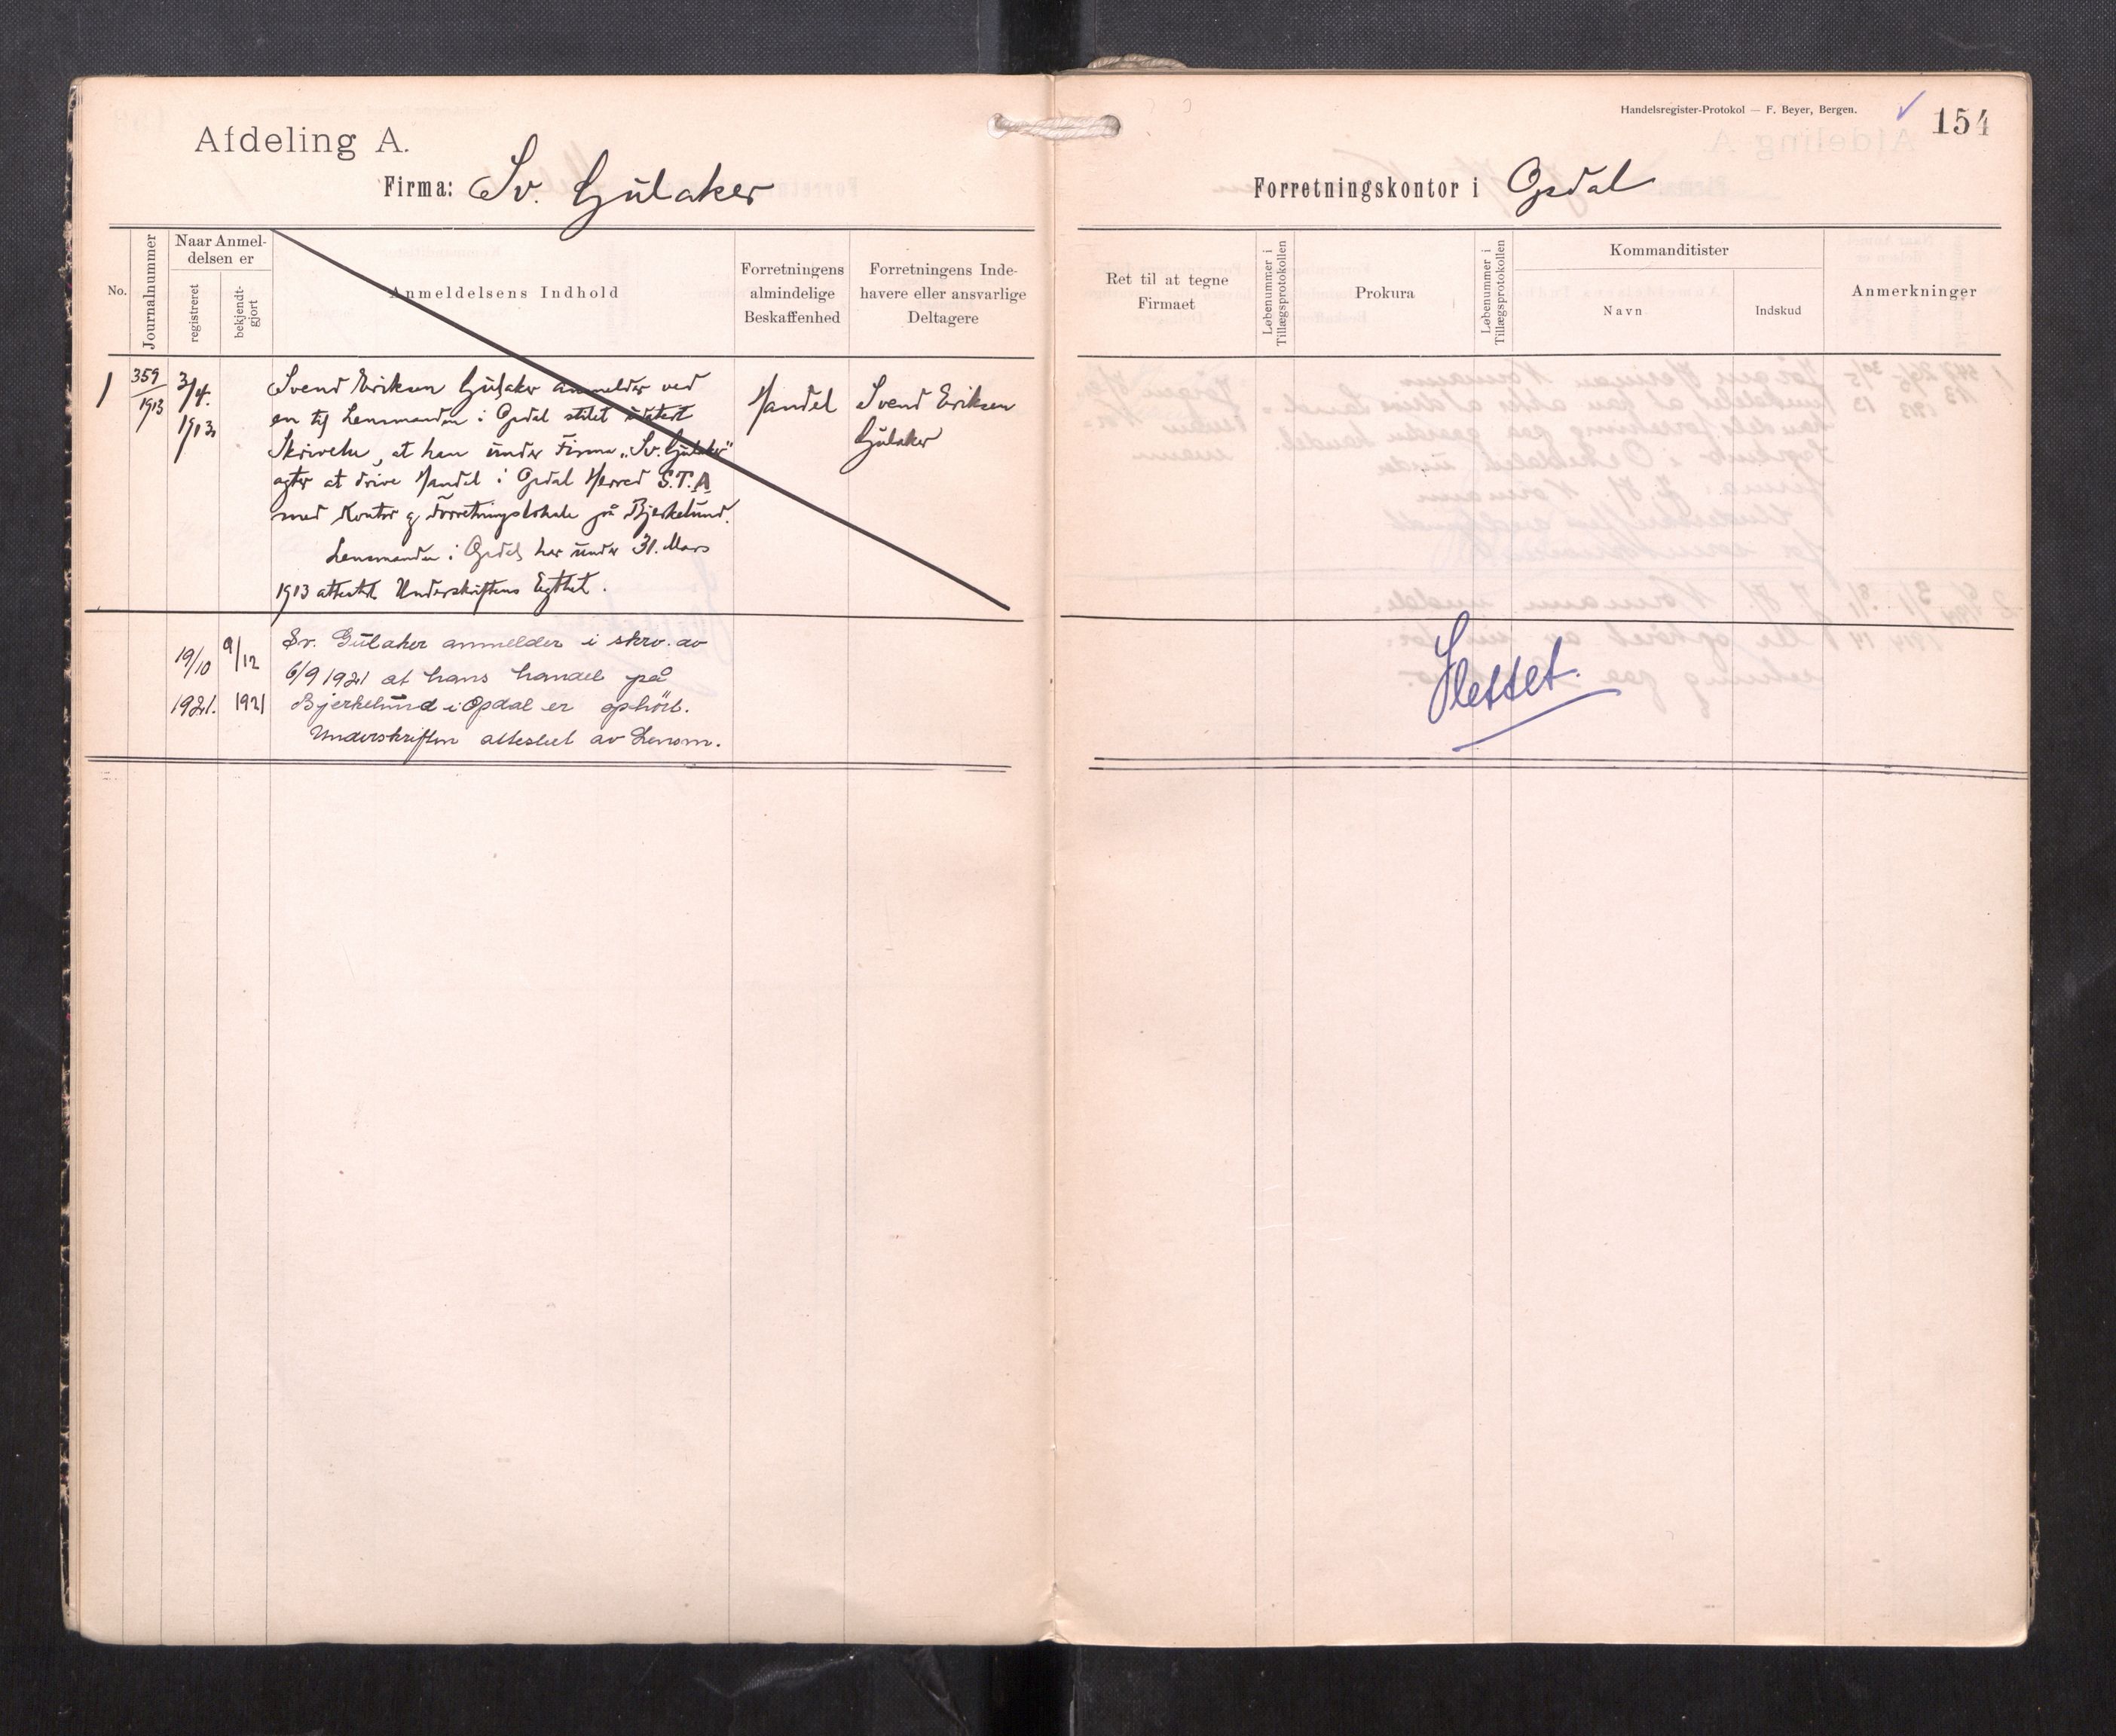 Handelsregister-Protokol — F. Beyer, Bergen.
154
Afdeling A.
Firma: Sv. Gulaker
Forretningskontor i Opdal
No.
Journalnummer
Naar Anmel-
delsen er
registreret
bekjendt-
gjort
Anmeldelsens Indhold
Forretningens
almindelige
Beskaffenhed
Forretningens Inde-
havere eller ansvarlige
Deltagere
Ret til at tegne
Firmaet
Løbenummer i
Tillægsprotokollen
Prokura
Løbenummer i
Tillægsprotokollen
Kommanditister
Navn
Indskud
Anmerkninger
1
359
1913
3/4.
1913
Svend Eriksen Gulaker anmelder ved
en til Lensmanden i Opdal stilet udatert
Skrivelse, at han under Firma „Sv. Gulaker"
agter at drive Handel i Opdal Herred S.T.A
med Kontor og Forretningslokale på Bjerkelund.
Lensmanden i Opdal har under 31. Mars
1913 attestert Underskriftens Egthet.
Handel
Svend Eriksen
Gulaker
19/10
1921.
9/12
1921
Sv. Gulaker anmelder i skrv. av
6/9 1921 at hans handel på
Bjerkelund i Opdal er ophört.
Underskriften attestert av Lensm.
Slettet.